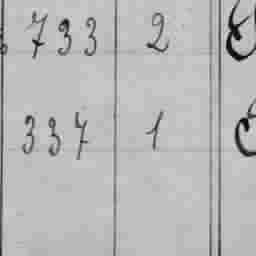 733 2
337 1